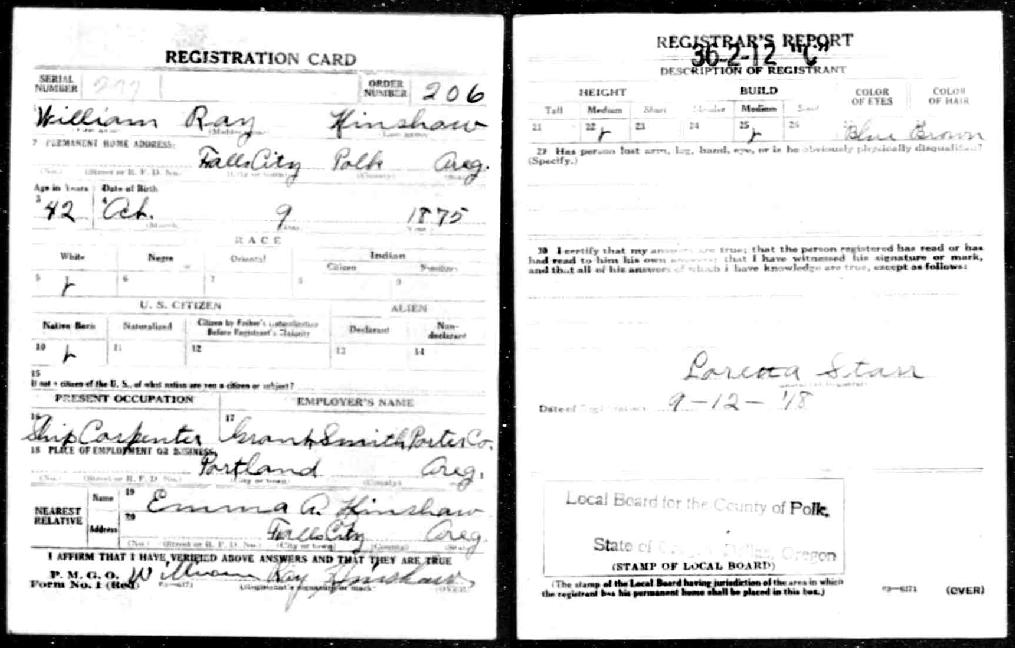 REGISTRATION CARD
SERIAL NUMBER 277
ORDER NUMBER 206
William Ray Hinshaw
2 PERMANENT HOME ADDRESS:
Falls City Polk Oreg.
(No.) (Street or R. F. D. No.) (City or town) (County) (State)
Age in Years Date of Birth
3
42 Oct. 9 1875
RACE
White Negro Oriental Indian
Citizen
5 6 7 8 9
U. S. CITIZEN ALIEN
Native Born Naturalized Citizen by Father's Naturalization Before Registrant's Majority Declarant Non-declarant
10 11 12 13 14
15
If not a citizen of the U. S., of what nation are you a citizen or subject?
PRESENT OCCUPATION EMPLOYER'S NAME
16 17
Ship Carpenter Grant Smith Porter Co.
18 PLACE OF EMPLOYMENT OR BUSINESS,
Portland Oreg.
(No.) (Street or R. F. D. No.) (City or town) (County)
NEAREST RELATIVE Name 19 Emma A. Hinshaw
Address 20 Falls City Oreg
(No.) (Street or R. F. D. No.) (City or town) (County) (State)
I AFFIRM THAT I HAVE VERIFIED ABOVE ANSWERS AND THAT THEY ARE TRUE
P. M. G. O.
Form No. 1 (Red) William Ray Hinshaw
(Registrant's signature or mark) (OVER)
REGISTRAR'S REPORT
36-2-12 "C"
DESCRIPTION OF REGISTRANT
HEIGHT BUILD COLOR OF EYES COLOR OF HAIR
Tall Medium Short Slender Medium Stout
21 22 23 24 25 26 Blue Brown
29 Has person lost arm, leg, hand, eye, or is he obviously physically disqualified?
(Specify.)
30 I certify that my answers are true; that the person registered has read or has
had read to him his own answers; that I have witnessed his signature or mark,
and that all of his answers of which I have knowledge are true, except as follows:
Lorena Starr
Date of Registration 9-12-'18
Local Board for the County of Polk,
State of Oregon, Dallas, Oregon
(STAMP OF LOCAL BOARD)
(The stamp of the Local Board having jurisdiction of the area in which
the registrant has his permanent home shall be placed in this box.)
03—6171 (OVER)